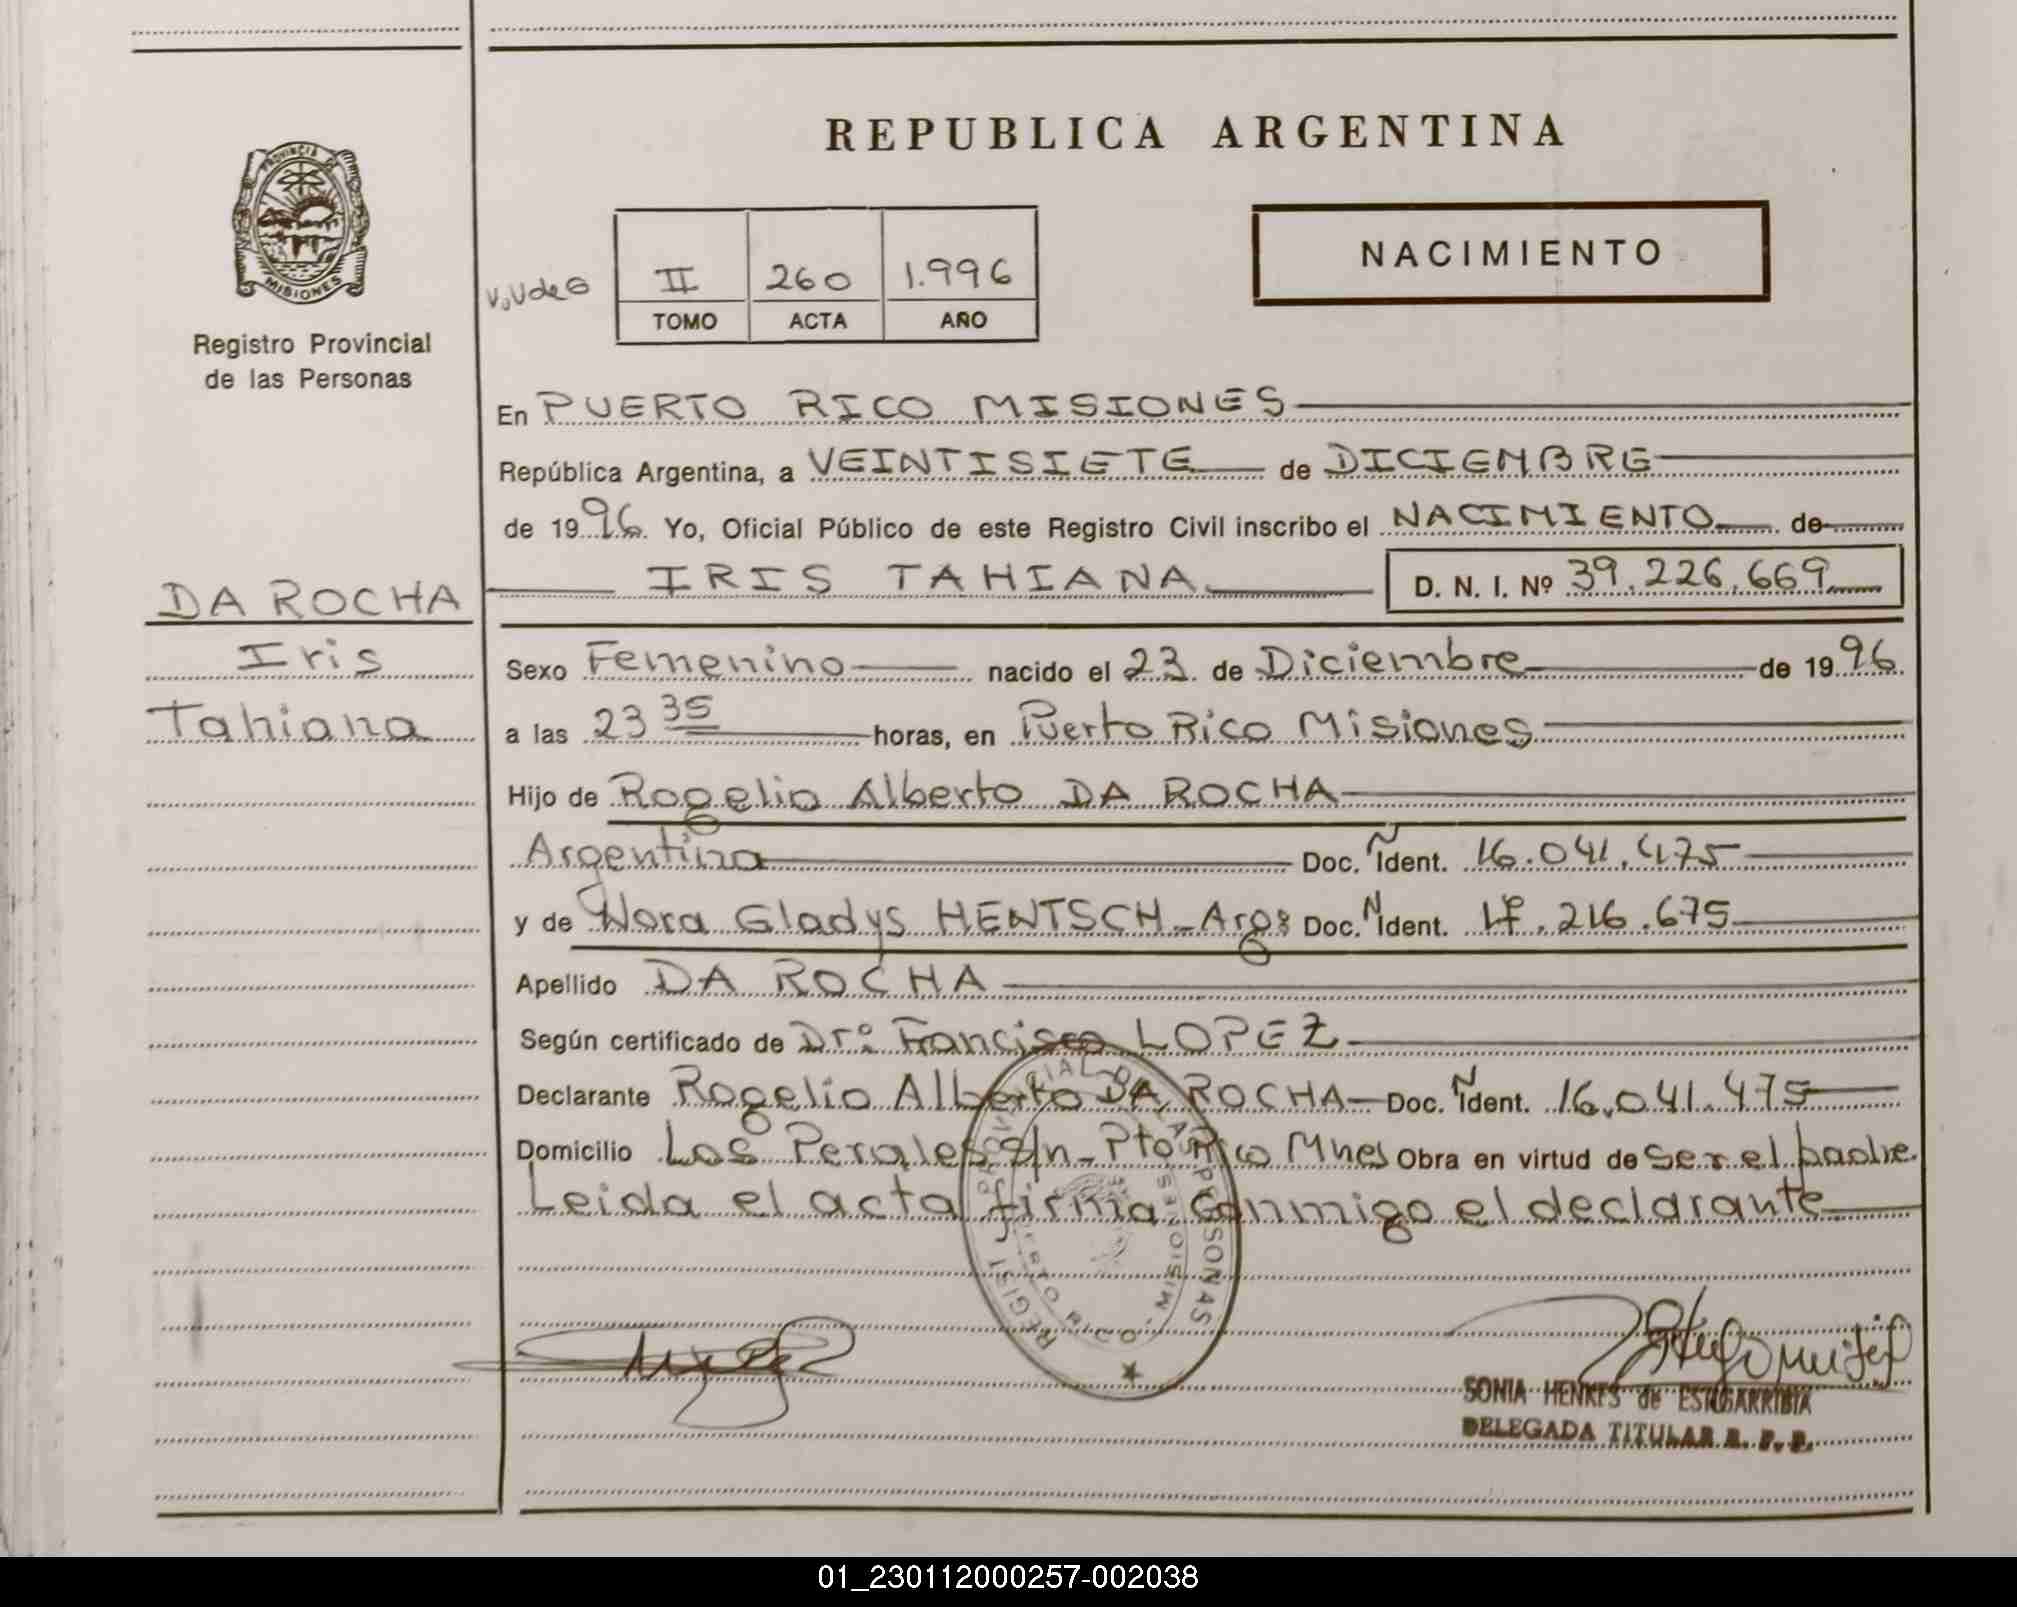 REPUBLICA ARGENTINA
PROVINCIA DE
MISIONES
Registro Provincial
de las Personas
NACIMIENTO
II 260 1.996
TOMO ACTA AÑO
En PUERTO RICO MISIONES
República Argentina, a VEINTISIETE de DICIEMBRE
de 1996. Yo, Oficial Público de este Registro Civil inscribo el NACIMIENTO de
IRIS TAHIANA D. N. I. Nº 39.226.669
DA ROCHA
Iris
Tahiana
Sexo Femenino nacido el 23 de Diciembre de 1996.
a las 23 35 horas, en Puerto Rico Misiones
Hijo de Rogelio Alberto DA ROCHA
Argentina Doc. Ñ Ident. 16.041.475
y de Nora Gladys HENTSCH - Arg: Doc. N Ident. 216.675
Apellido DA ROCHA
Según certificado de Dr: Francisco LOPEZ
Declarante Rogelio Alberto DA ROCHA - Doc. Ñ Ident. 16.041.475
Domicilio Los Perales S/n - Pto Rico Mnes Obra en virtud de ser el padre.
Leida el acta firma conmigo el declarante
REGISTRO PROVINCIAL DE LAS PERSONAS
PUERTO RICO - MISIONES
SONIA HENKES de ESTIGARRIBIA
DELEGADA TITULAR R. P. P.
01_230112000257-002038